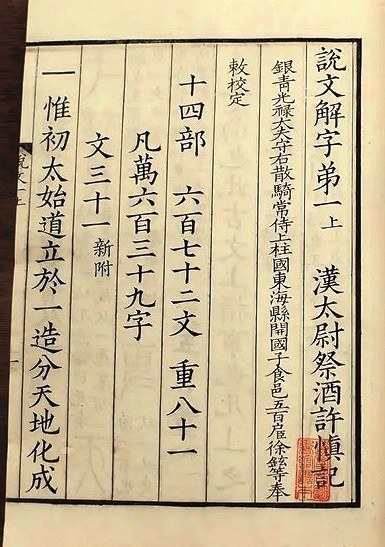 說文解字弟一上 漢太尉祭酒許慎記
銀青光祿大夫守右散騎常侍上柱國東海縣開國子食邑五百戶徐鉉等奉
敕校定
十四部 六百七十二文 重八十一
凡萬六百三十九字
文三十一新附
一惟初太始道立於一造分天地化成